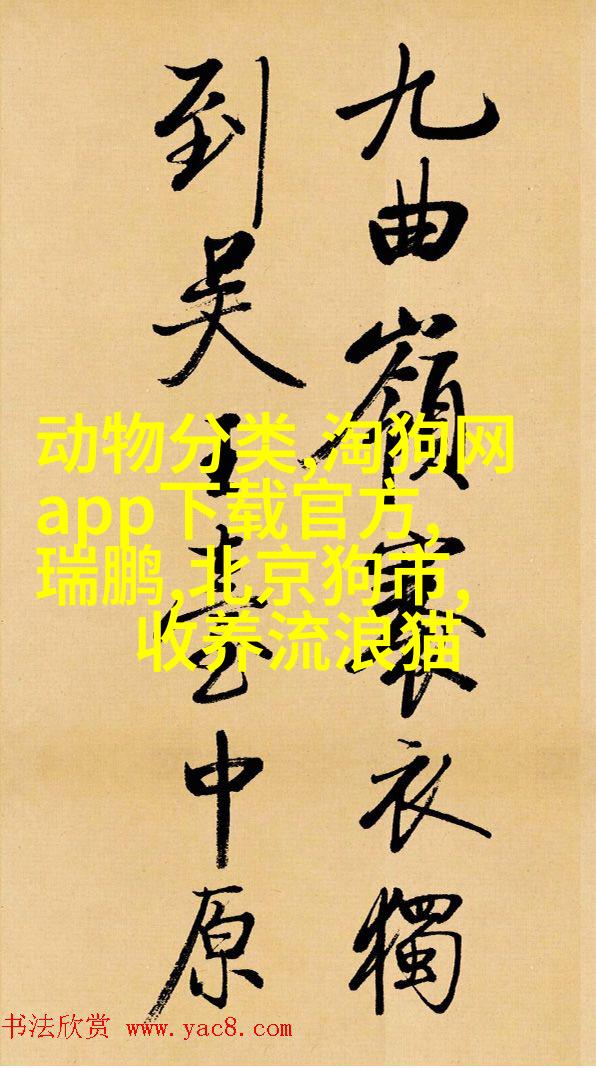 九曲嶺褰衣獨
到吴王臺中原
动物分类,淘狗网
app下载官方,
瑞鹏,北京狗市,
收养流浪猫
书法欣赏 www.yac8.com